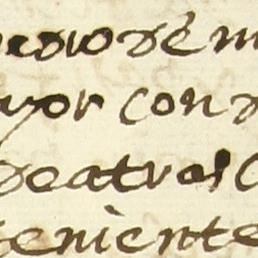 medio de m
yor con d
de atras C
teniente